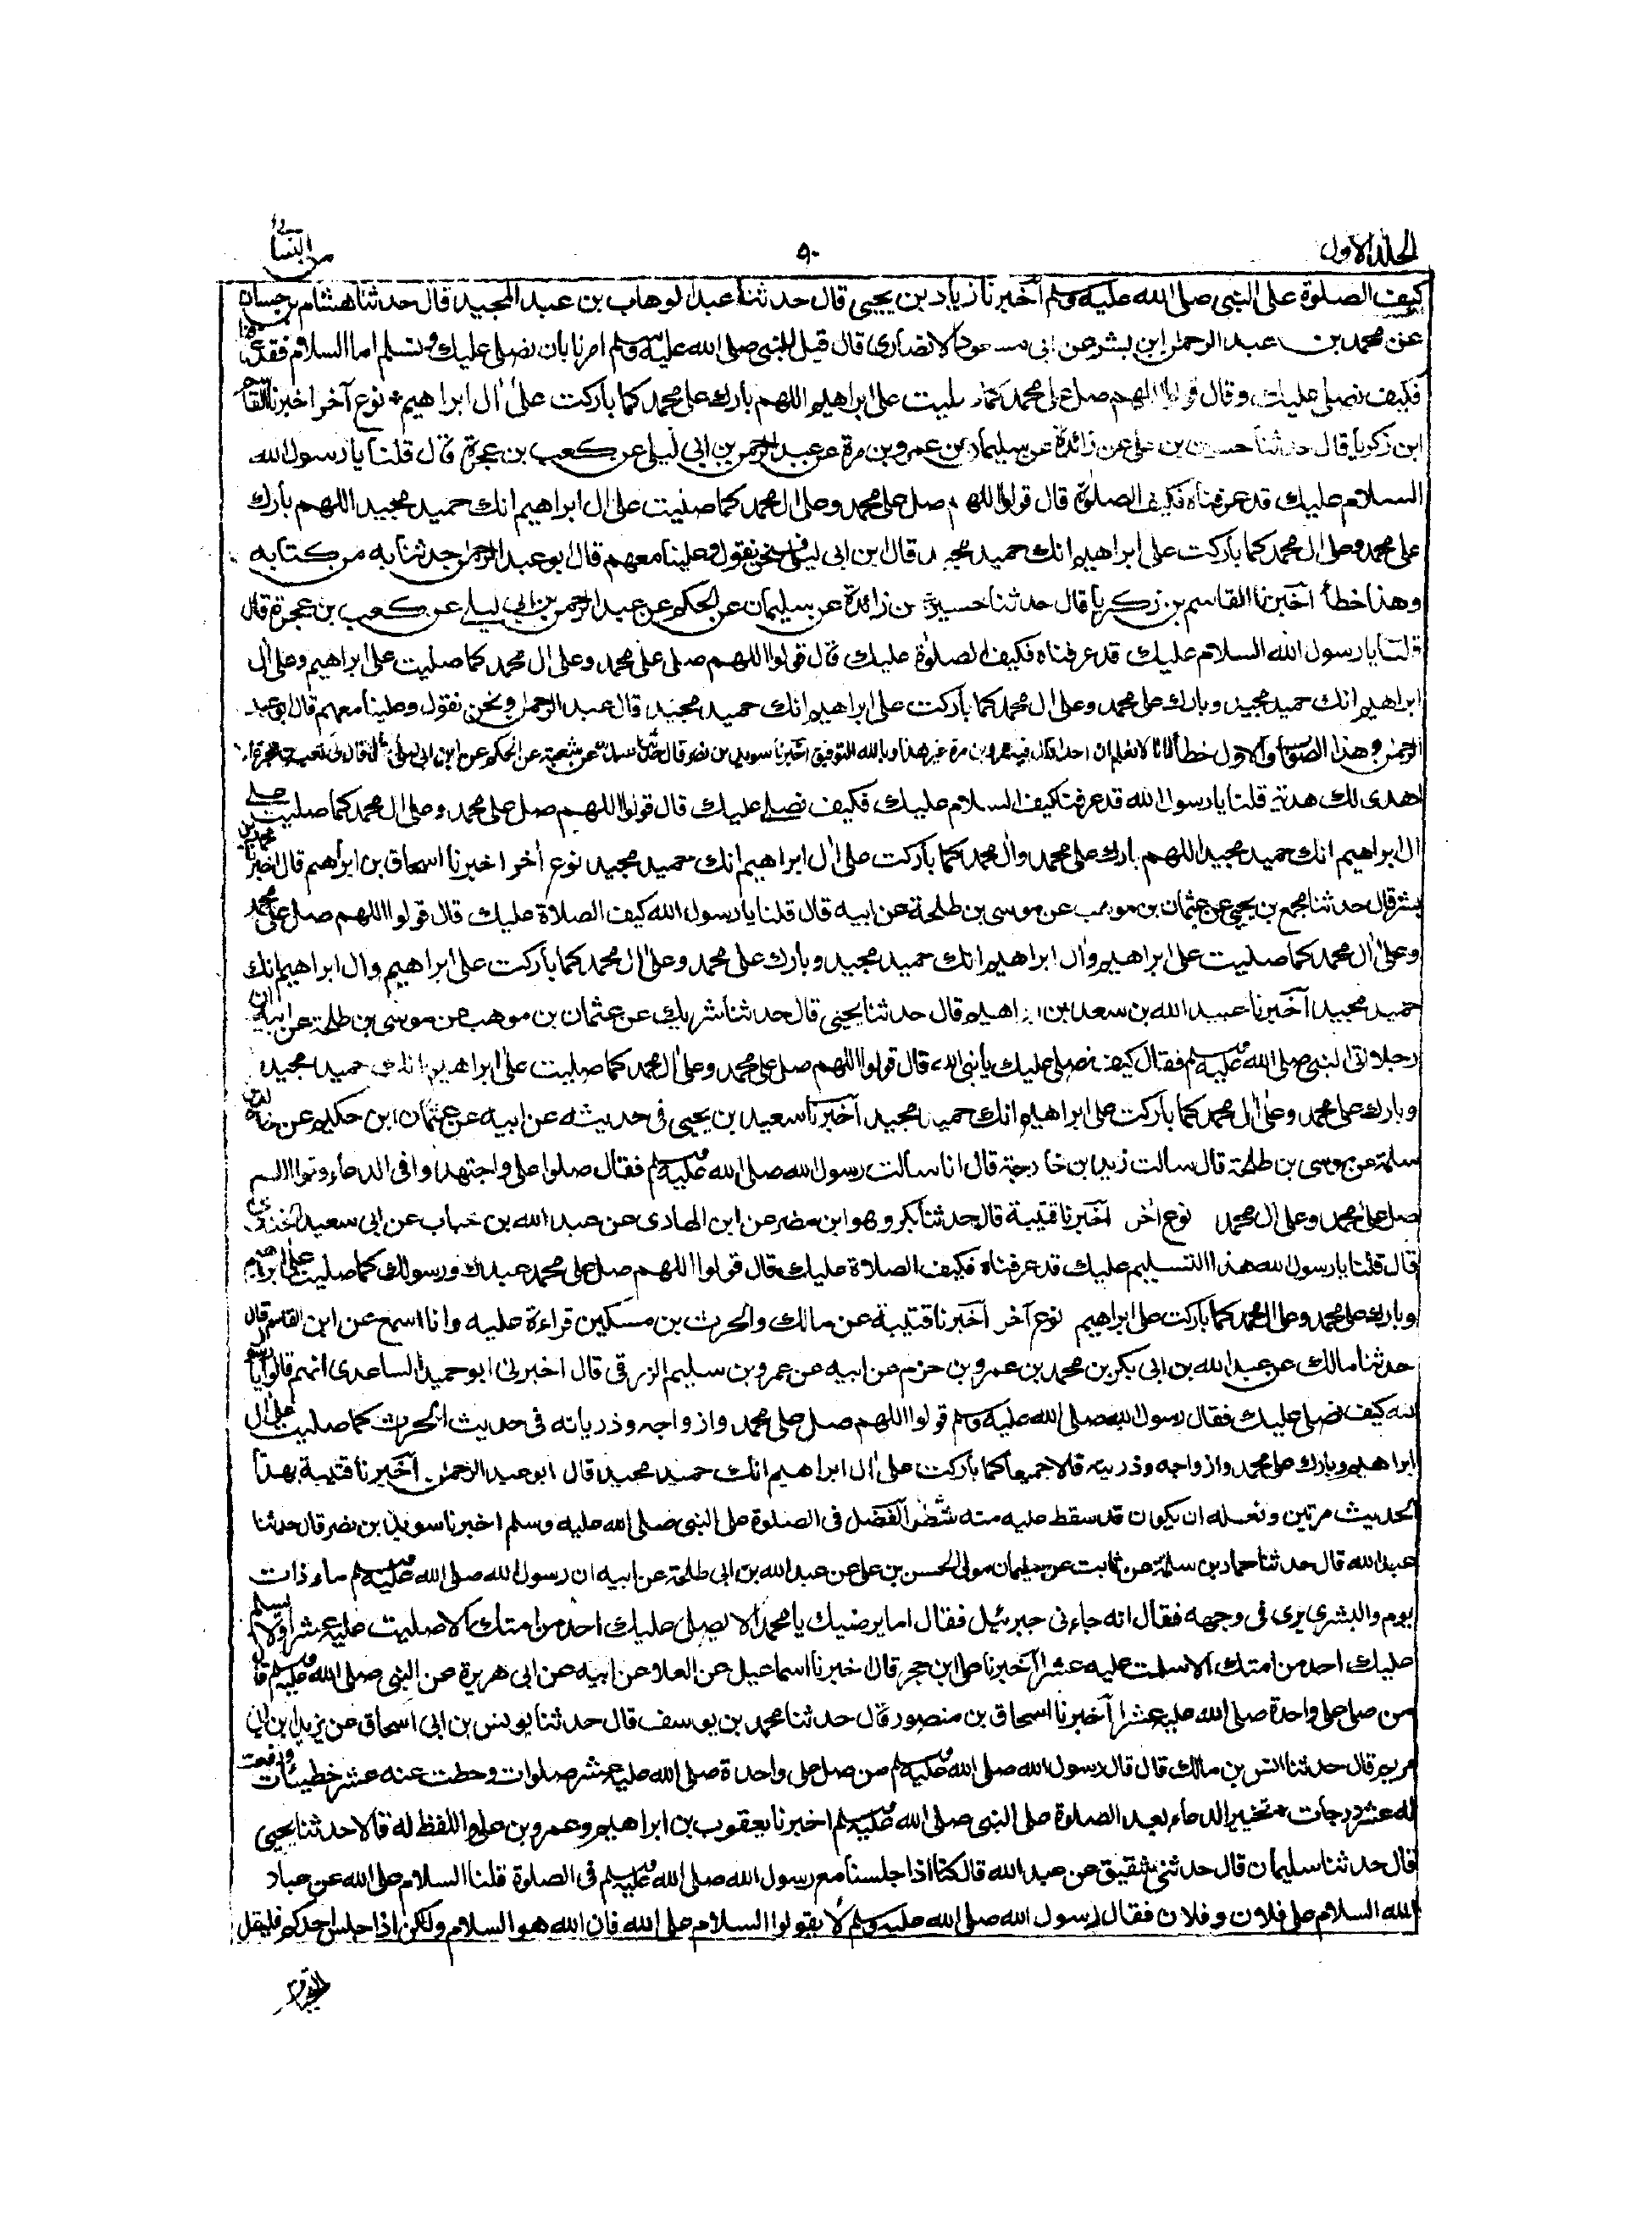 الجلد الاول
٩٠
من النسائ
كيف الصلوة على النبى صلى الله عليه وسلم آخبرنا زياد بن يحيى قال حدثنا عبد الوهاب بن عبد المجيد قال حدثنا هشام بن حسان
عن محمد بن عبد الرحمن ابن بشر عن ابى مسعود الانصارى قال قيل للنبى صلى الله عليه وسلم امرنا بان نصلى عليك ونسلم اما السلام فقد عرفناه
فكيف نصلى عليك وقال قولوا اللهم صل على محمد كما صليت على ابراهيم اللهم بارك على محمد كما باركت على ال ابراهيم نوع آخر اخبرنا القاسم
ابن زكريا قال حدثنا حسين بن على عن زائدة عن سليمان عن عمرو بن مرة عن عبد الرحمن بن ابى ليلى عن كعب بن عجرة قال قلنا يا رسول الله
السلام عليك قد عرفناه فكيف الصلوة قال قولوا اللهم صل على محمد وعلى ال محمد كما صليت على ال ابراهيم انك حميد مجيد اللهم بارك
على محمد وعلى ال محمد كما باركت على ابراهيم انك حميد مجيد قال ابن ابى ليلى ونحن نقول وعلينا معهم قال ابو عبد الرحمن حدثنا به من كتابه
وهذا خطأ آخبرنا القاسم بن زكريا قال حدثنا حسين عن زائدة عن سليمان عن الحكم عن عبد الرحمن بن ابى ليلى عن كعب بن عجرة قال
قلنا يا رسول الله السلام عليك قد عرفناه فكيف الصلوة عليك قال قولوا اللهم صلى على محمد وعلى ال محمد كما صليت على ابراهيم وعلى ال
ابراهيم انك حميد مجيد وبارك على محمد وعلى ال محمد كما باركت على ابراهيم انك حميد مجيد قال عبد الرحمن ونحن نقول وعلينا معهم قال ابو عبد
الرحمن وهذا الصواب والاول خطأ لانا لا نعلم ان احدا قال فيه عمرو بن مرة غير هذا وبالله التوفيق اخبرنا سويد بن نصر قال حدثنا عبد الله عن شعبة عن الحكم عن ابن ابى ليلى قال قال لى كعب بن عجرة الا
اهدى لك هدية قلنا يا رسول الله قد عرفنا كيف السلام عليك فكيف نصلى عليك قال قولوا اللهم صل على محمد وعلى ال محمد كما صليت على
ال ابراهيم انك حميد مجيد اللهم بارك على محمد وال محمد كما باركت على ال ابراهيم انك حميد مجيد نوع أخر اخبرنا اسحاق بن ابراهيم قال اخبرنا محمد بن
بشر قال حدثنا مجمع بن يحيى عن عثمان بن موهب عن موسى بن طلحة عن ابيه قال قلنا يا رسول الله كيف الصلاة عليك قال قولوا اللهم صل على محمد
وعلى ال محمد كما صليت على ابراهيم وال ابراهيم انك حميد مجيد وبارك على محمد وعلى ال محمد كما باركت على ابراهيم وال ابراهيم انك
حميد مجيد آخبرنا عبيد الله بن سعد بن ابراهيم قال حدثنا يحيى قال حدثنا شريك عن عثمان بن موهب عن موسى بن طلحة عن ابيه ان
رجلا اتى النبى صلى الله عليه وسلم فقال كيف نصلى عليك يا نبى الله قال قولوا اللهم صل على محمد وعلى ال محمد كما صليت على ابراهيم انك حميد مجيد
وبارك على محمد وعلى ال محمد كما باركت على ابراهيم انك حميد مجيد آخبرنا سعيد بن يحيى فى حديثه عن ابيه عن عثمان ابن حكيم عن خالد بن
سلمة عن موسى بن طلحة قال سالت زيد ابن خارجة قال انا سالت رسول الله صلى الله عليه وسلم فقال صلوا على واجتهدوا فى الدعاء وقولوا اللهم
صل على محمد وعلى ال محمد نوع أخر آخبرنا قتيبة قال حدثنا بكر وهو ابن مضر عن ابن الهادى عن عبد الله بن خباب عن ابى سعيد الخدرى
قال قلنا يا رسول الله هذا التسليم عليك قد عرفناه فكيف الصلاة عليك قال قولوا اللهم صل على محمد عبدك ورسولك كما صليت على ابراهيم
وبارك على محمد وعلى ال محمد كما باركت على ابراهيم نوع آخر آخبرنا قتيبة عن مالك والحرث بن مسكين قراءة عليه وانا اسمع عن ابن القاسم قال
حدثنا مالك عن عبد الله بن ابى بكر بن محمد بن عمرو بن حزم عن ابيه عن عمرو بن سليم الزرقى قال اخبرنى ابو حميد الساعدى انهم قالوا يا رسول
الله كيف نصلى عليك فقال رسول الله صلى الله عليه وسلم قولوا اللهم صل على محمد وازواجه وذرياته فى حديث الحرث كما صليت على ال
ابراهيم وبارك على محمد وازواجه وذريته قالا جميعا كما باركت على ال ابراهيم انك حميد مجيد قال ابو عبد الرحمن آخبرنا قتيبة بهذا
الحديث مرتين ولعله ان يكون قد سقط عليه منه شطر الفضل فى الصلوة على النبى صلى الله عليه وسلم اخبرنا سويد بن نصر قال حدثنا
عبد الله قال حدثنا حماد بن سلمة عن ثابت عن سليمان مولى الحسن بن على عن عبد الله بن ابى طلحة عن ابيه ان رسول الله صلى الله عليه وسلم جاء ذات
يوم والبشرى يرى فى وجهه فقال انه جاءنى جبرئيل فقال اما يرضيك يا محمد الا يصلى عليك احد من امتك الا صليت عليه عشرا ولا يسلم
عليك احد من امتك الا سلمت عليه عشرا آخبرنا على ابن حجر قال اخبرنا اسماعيل عن العلاء عن ابيه عن ابى هريرة عن النبى صلى الله عليه وسلم قال
من صلى على واحدة صلى الله عليه عشرا آخبرنا اسحاق بن منصور قال حدثنا محمد بن يوسف قال حدثنا يونس بن ابى اسحاق عن يزيد ابن ابى
مريم قال حدثنا انس بن مالك قال قال رسول الله صلى الله عليه وسلم من صلى على واحدة صلى الله عليه عشر صلوات وحطت عنه عشر خطيئات ورفعت
له عشر درجات تخيير الدعاء بعد الصلوة على النبى صلى الله عليه وسلم اخبرنا يعقوب بن ابراهيم وعمرو بن على واللفظ له قالا حدثنا يحيى
قال حدثنا سليمان قال حدثنى شقيق عن عبد الله قال كنا اذا جلسنا مع رسول الله صلى الله عليه وسلم فى الصلوة قلنا السلام على الله عن عباد
الله السلام على فلان وفلان فقال رسول الله صلى الله عليه وسلم لا يقولوا السلام على الله فان الله هو السلام ولكن اذا جلس احدكم فليقل